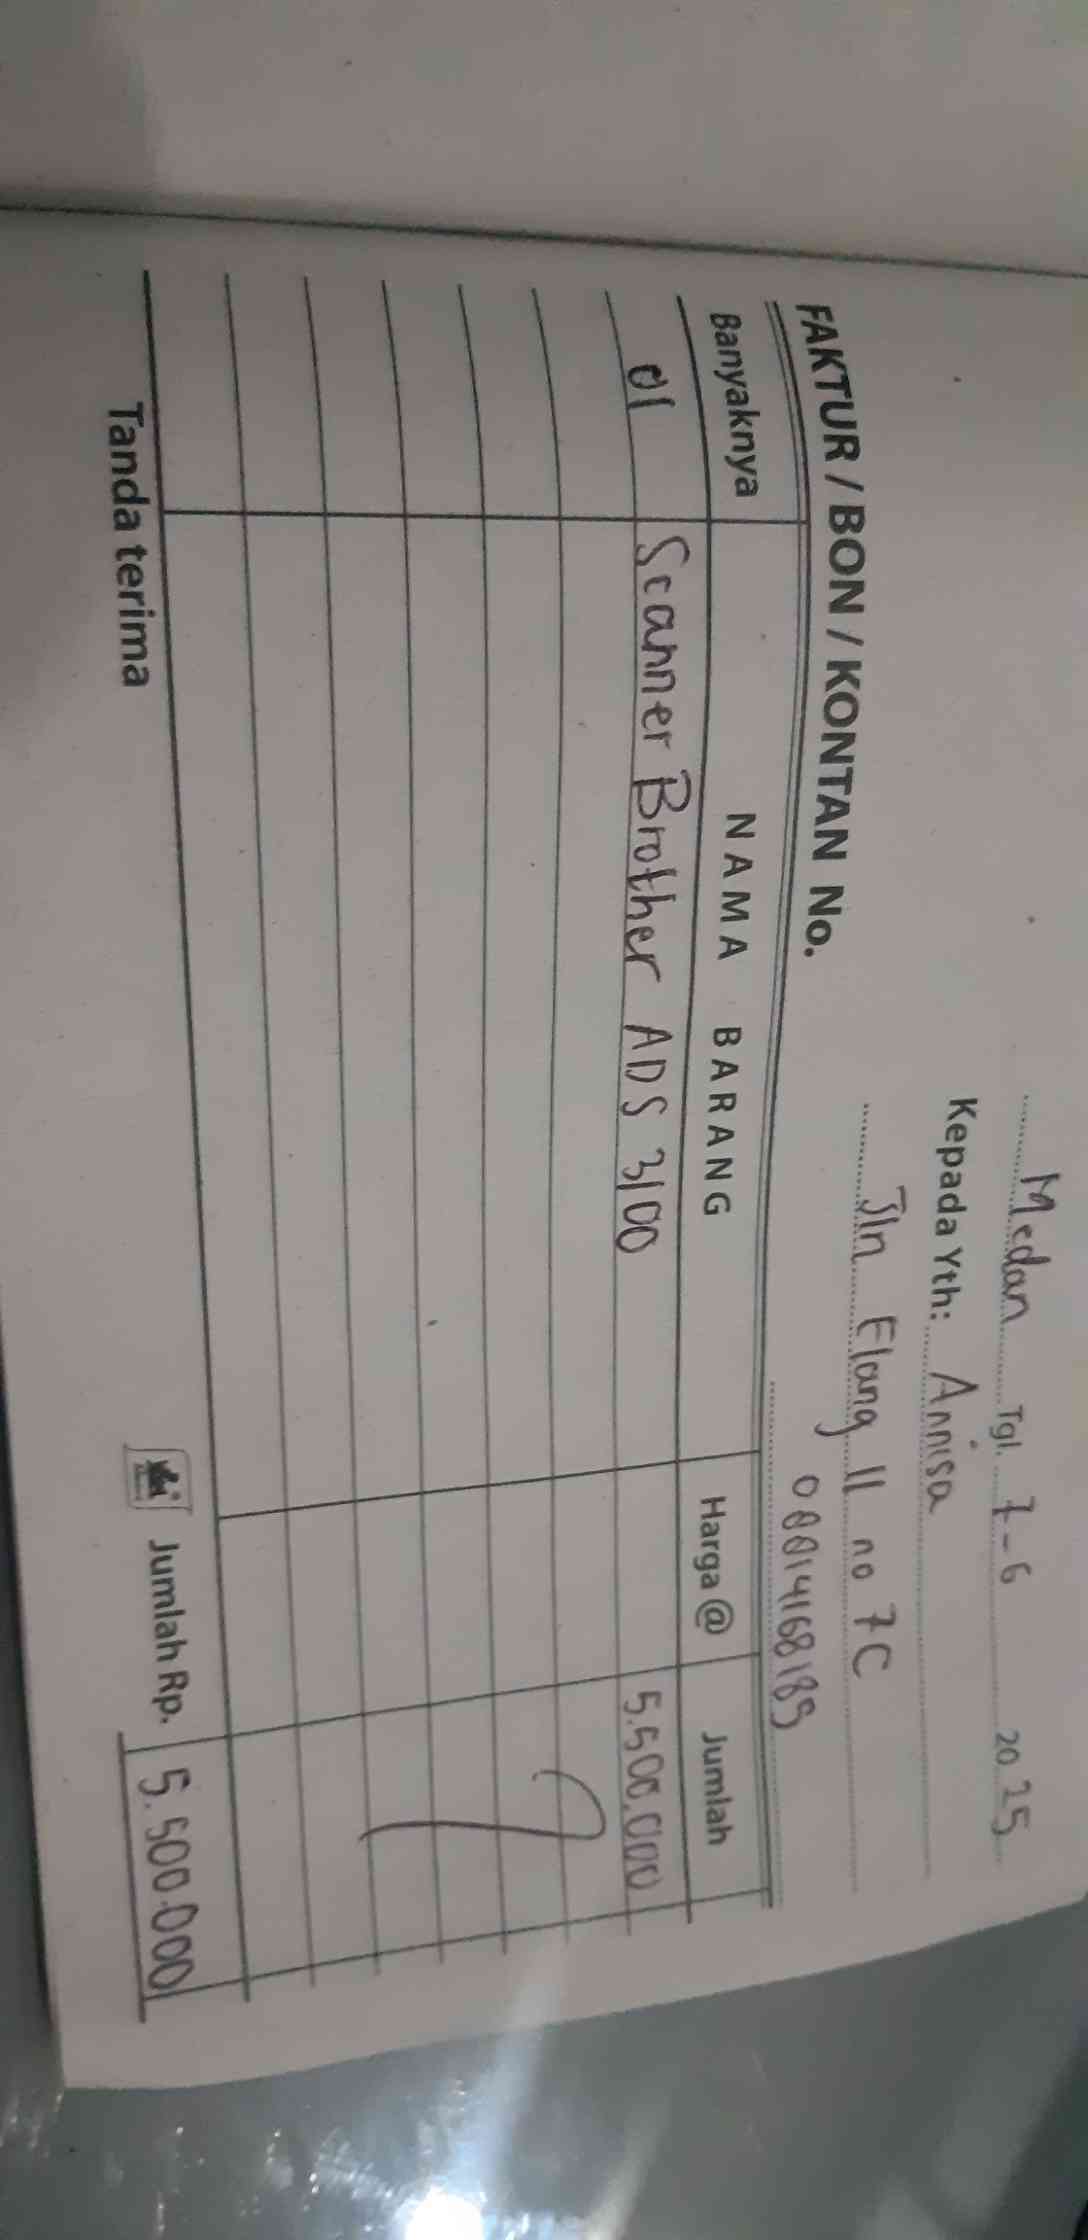 Medan Tgl. 7-6 2025
Kepada Yth: Annisa
Jln Elang II no 7C
FAKTUR / BON / KONTAN No.
Banyaknya NAMA BARANG Harga @ Jumlah
01 Scanner Brother ADS 3100 5.500.000
Tanda terima Jumlah Rp. 5.500.000